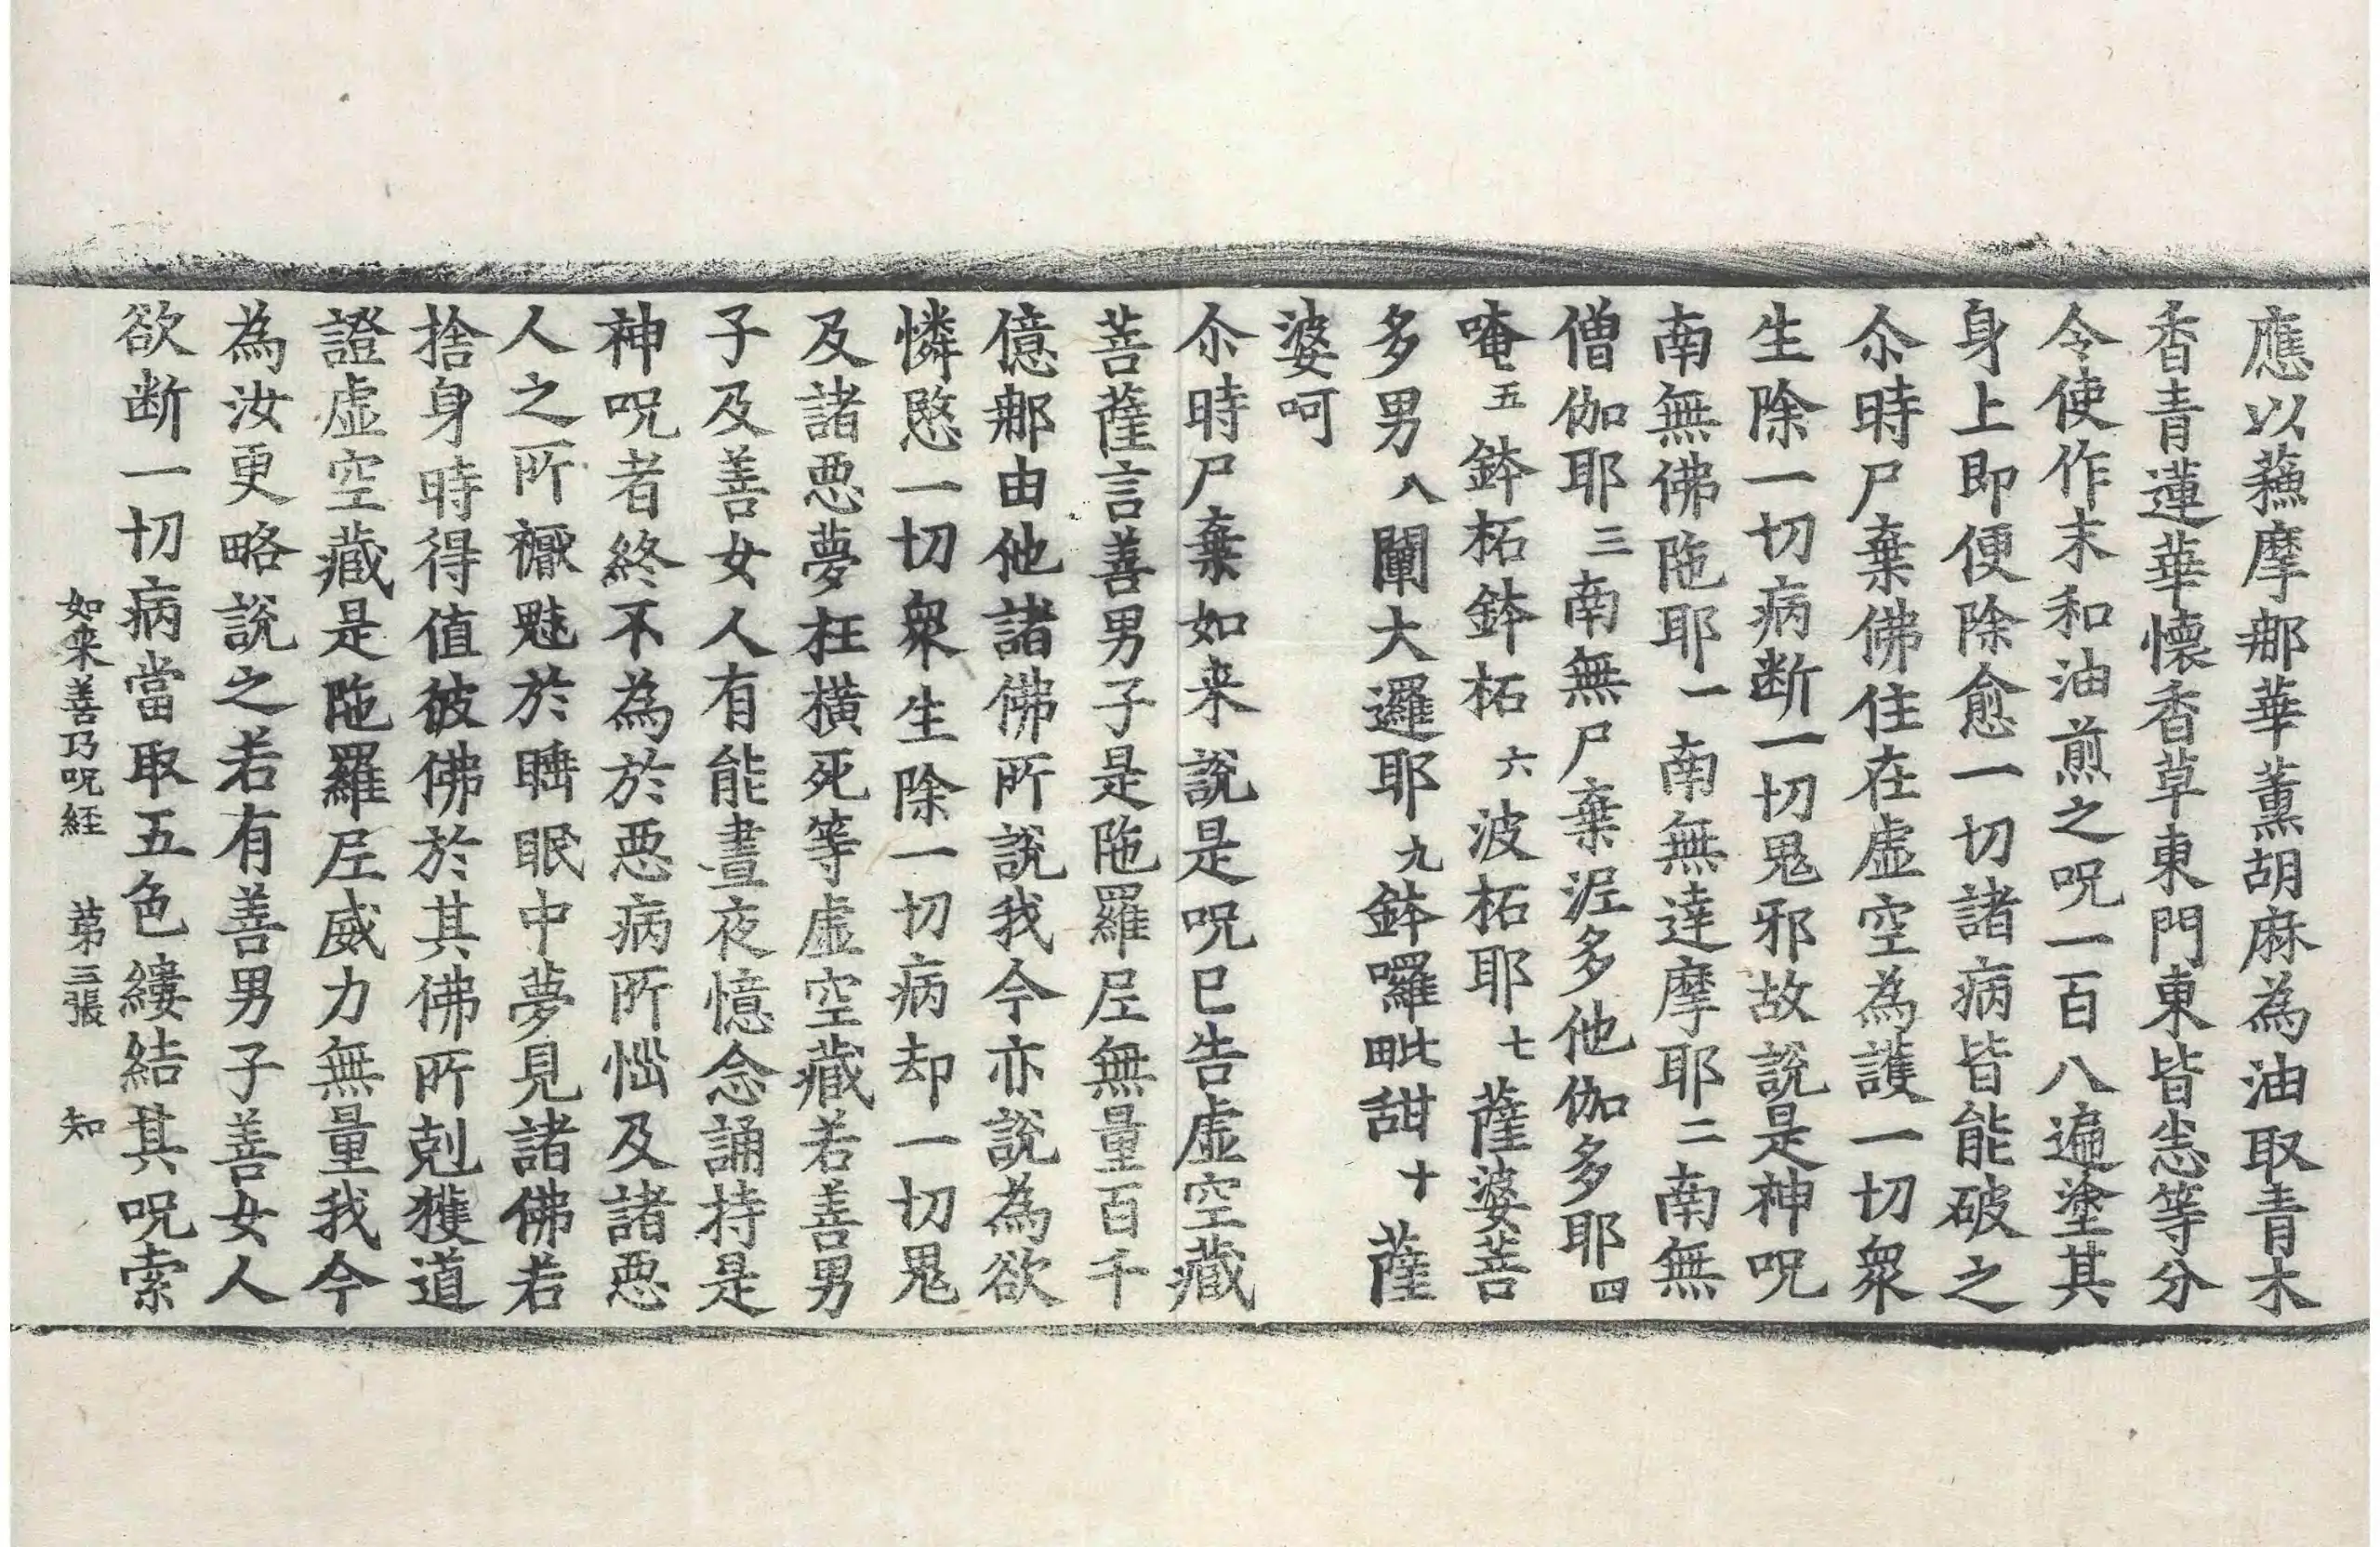 應以蘓摩那華薰胡麻為油取青木
香青蓮華懷香草東門東皆悉等分
令使作末和油煎之呪一百八遍塗其
身上即便除愈一切諸病皆能破之
尒時尸棄佛住在虛空為護一切衆
生除一切病断一切鬼邪故說是神呪
南無佛陁耶一南無達摩耶二南無
僧伽耶三南無尸棄泥多他伽多耶四
唵五鉢柘鉢柘六波柘耶七薩婆菩
多男八闡大邏耶九鉢囉毗甜十薩
婆呵
尒時尸棄如来說是呪已告虛空藏
菩薩言善男子是陁羅尼無量百千
億那由他諸佛所說我今亦說為欲
憐愍一切衆生除一切病却一切鬼
及諸惡夢枉橫死等虛空藏若善男
子及善女人有能晝夜憶念誦持是
神呪者終不為於惡病所惱及諸惡
人之所禰魅於睡眠中夢見諸佛若
捨身時得值彼佛於其佛所剋獲道
證虛空藏是陁羅尼威力無量我今
為汝更略說之若有善男子善女人
欲断一切病當取五色縷結其呪索
如来善乃呪經 苐三張 知